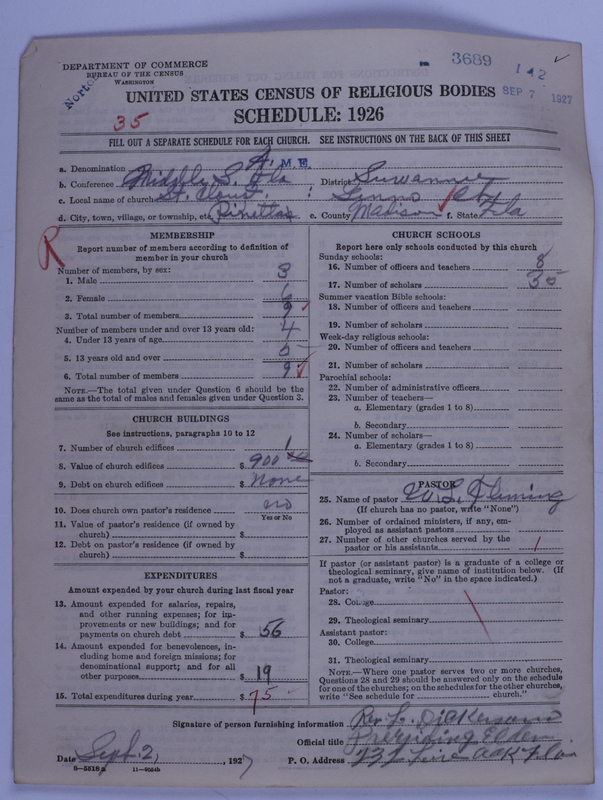 DEPARTMENT OF COMMERCE
BUREAU OF THE CENSUS
WASHINGTON
3689
142
SEP 7 1927
UNITED STATES CENSUS OF RELIGIOUS BODIES
35
SCHEDULE: 1926
FILL OUT A SEPARATE SCHEDULE FOR EACH CHURCH. SEE INSTRUCTIONS ON THE BACK OF THIS SHEET
a. Denomination A. M. E.
b. Conference Middle S. Fla ; District Suwannee
c. Local name of church St. ;
d. City, town, village, or township, etc. Pinetta e. County Madison f. State Fla
R
MEMBERSHIP
Report number of members according to definition of
member in your church
Number of members, by sex:
1. Male 3
2. Female 6
3. Total number of members 9
Number of members under and over 13 years old:
4. Under 13 years of age 4
5. 13 years old and over 5
6. Total number of members 9
NOTE.—The total given under Question 6 should be the
same as the total of males and females given under Question 3.
CHURCH BUILDINGS
See instructions, paragraphs 10 to 12
7. Number of church edifices 1
8. Value of church edifices $ 900
9. Debt on church edifices $ None
10. Does church own pastor's residence no
Yes or No
11. Value of pastor's residence (if owned by
church) $
12. Debt on pastor's residence (if owned by
church) $
EXPENDITURES
Amount expended by your church during last fiscal year
13. Amount expended for salaries, repairs,
and other running expenses; for im-
provements or new buildings; and for
payments on church debt $ 56
14. Amount expended for benevolences, in-
cluding home and foreign missions; for
denominational support; and for all
other purposes $ 19
15. Total expenditures during year $ 75
CHURCH SCHOOLS
Report here only schools conducted by this church
Sunday schools:
16. Number of officers and teachers 8
17. Number of scholars 35
Summer vacation Bible schools:
18. Number of officers and teachers
19. Number of scholars
Week-day religious schools:
20. Number of officers and teachers
21. Number of scholars
Parochial schools:
22. Number of administrative officers
23. Number of teachers—
a. Elementary (grades 1 to 8)
b. Secondary
24. Number of scholars—
a. Elementary (grades 1 to 8)
b. Secondary
PASTOR
25. Name of pastor W. L. Fleming
(If church has no pastor, write "None")
26. Number of ordained ministers, if any, em-
ployed as assistant pastors
27. Number of other churches served by the
pastor or his assistants 1
If pastor (or assistant pastor) is a graduate of a college or
theological seminary, give name of institution below. (If
not a graduate, write "No" in the space indicated.)
Pastor:
28. College
29. Theological seminary
Assistant pastor:
30. College
31. Theological seminary
NOTE.—Where one pastor serves two or more churches,
Questions 28 and 29 only should be answered only on the schedule
for one of the churches; on the schedules for the other churches,
write "See schedule for church."
Signature of person furnishing information Rev L. Dickerson
Official title Presiding Elder
Date Sept. 2, 1927 P. O. Address Live Oak Fla
8—5518a 11—9024b